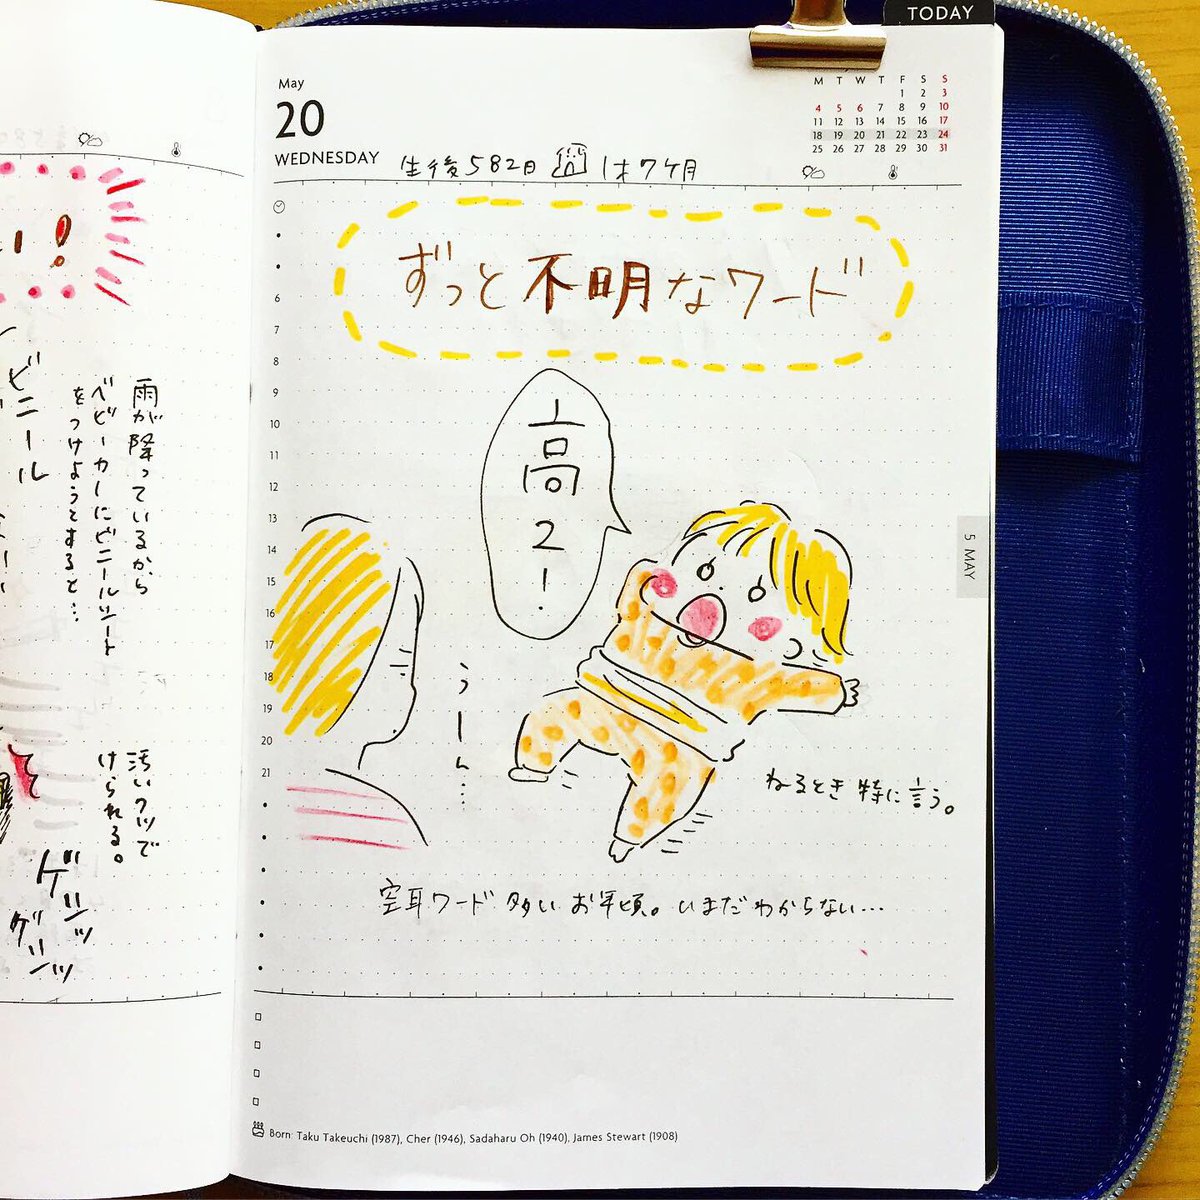 TODAY
May
20
WEDNESDAY
生後582日 1才7ヶ月
M T W T F S S
1 2 3
4 5 6 7 8 9 10
11 12 13 14 15 16 17
18 19 20 21 22 23 24
25 26 27 28 29 30 31
ずっと不明なワード
6
7
8
9
10
11
12
13
14
15
16
17
18
19
20
21
高2!
うーん…
ねるとき特に言う。
空耳ワード多いお年頃。いまだわからない…
5 MAY
Born: Taku Takeuchi (1987), Cher (1946), Sadaharu Oh (1940), James Stewart (1908)
い!
雨が降っているから
ベビーカーにビニールシート
をつけようとすると…
ビニール
汚いクツで
けられる。
ゲシッ
ゲシッ